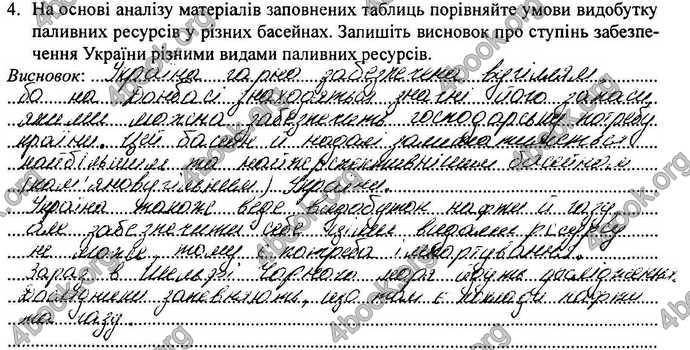 4. На основі аналізу матеріалів заповнених таблиць порівняйте умови видобутку
паливних ресурсів у різних басейнах. Запишіть висновок про ступінь забезпе-
чення України різними видами паливних ресурсів.
Висновок: Україна гарно забезпечена вугіллям,
бо на Донбасі знаходяться значні його запаси,
якими можна забезпечити господарську потребу
країни. Цей басейн й надалі залишатиметься
найбільшим та найперспективнішим басейном
(кам'яновугільним) України.
Україна також веде видобуток нафти й газу,
але забезпечити себе цими видами ресурсу
не може, тому є потреба імпортування.
Зараз в шельфі Чорного моря йдуть дослідження.
Дослідники запевняють, що там є поклади нафти
та газу.
4book.org